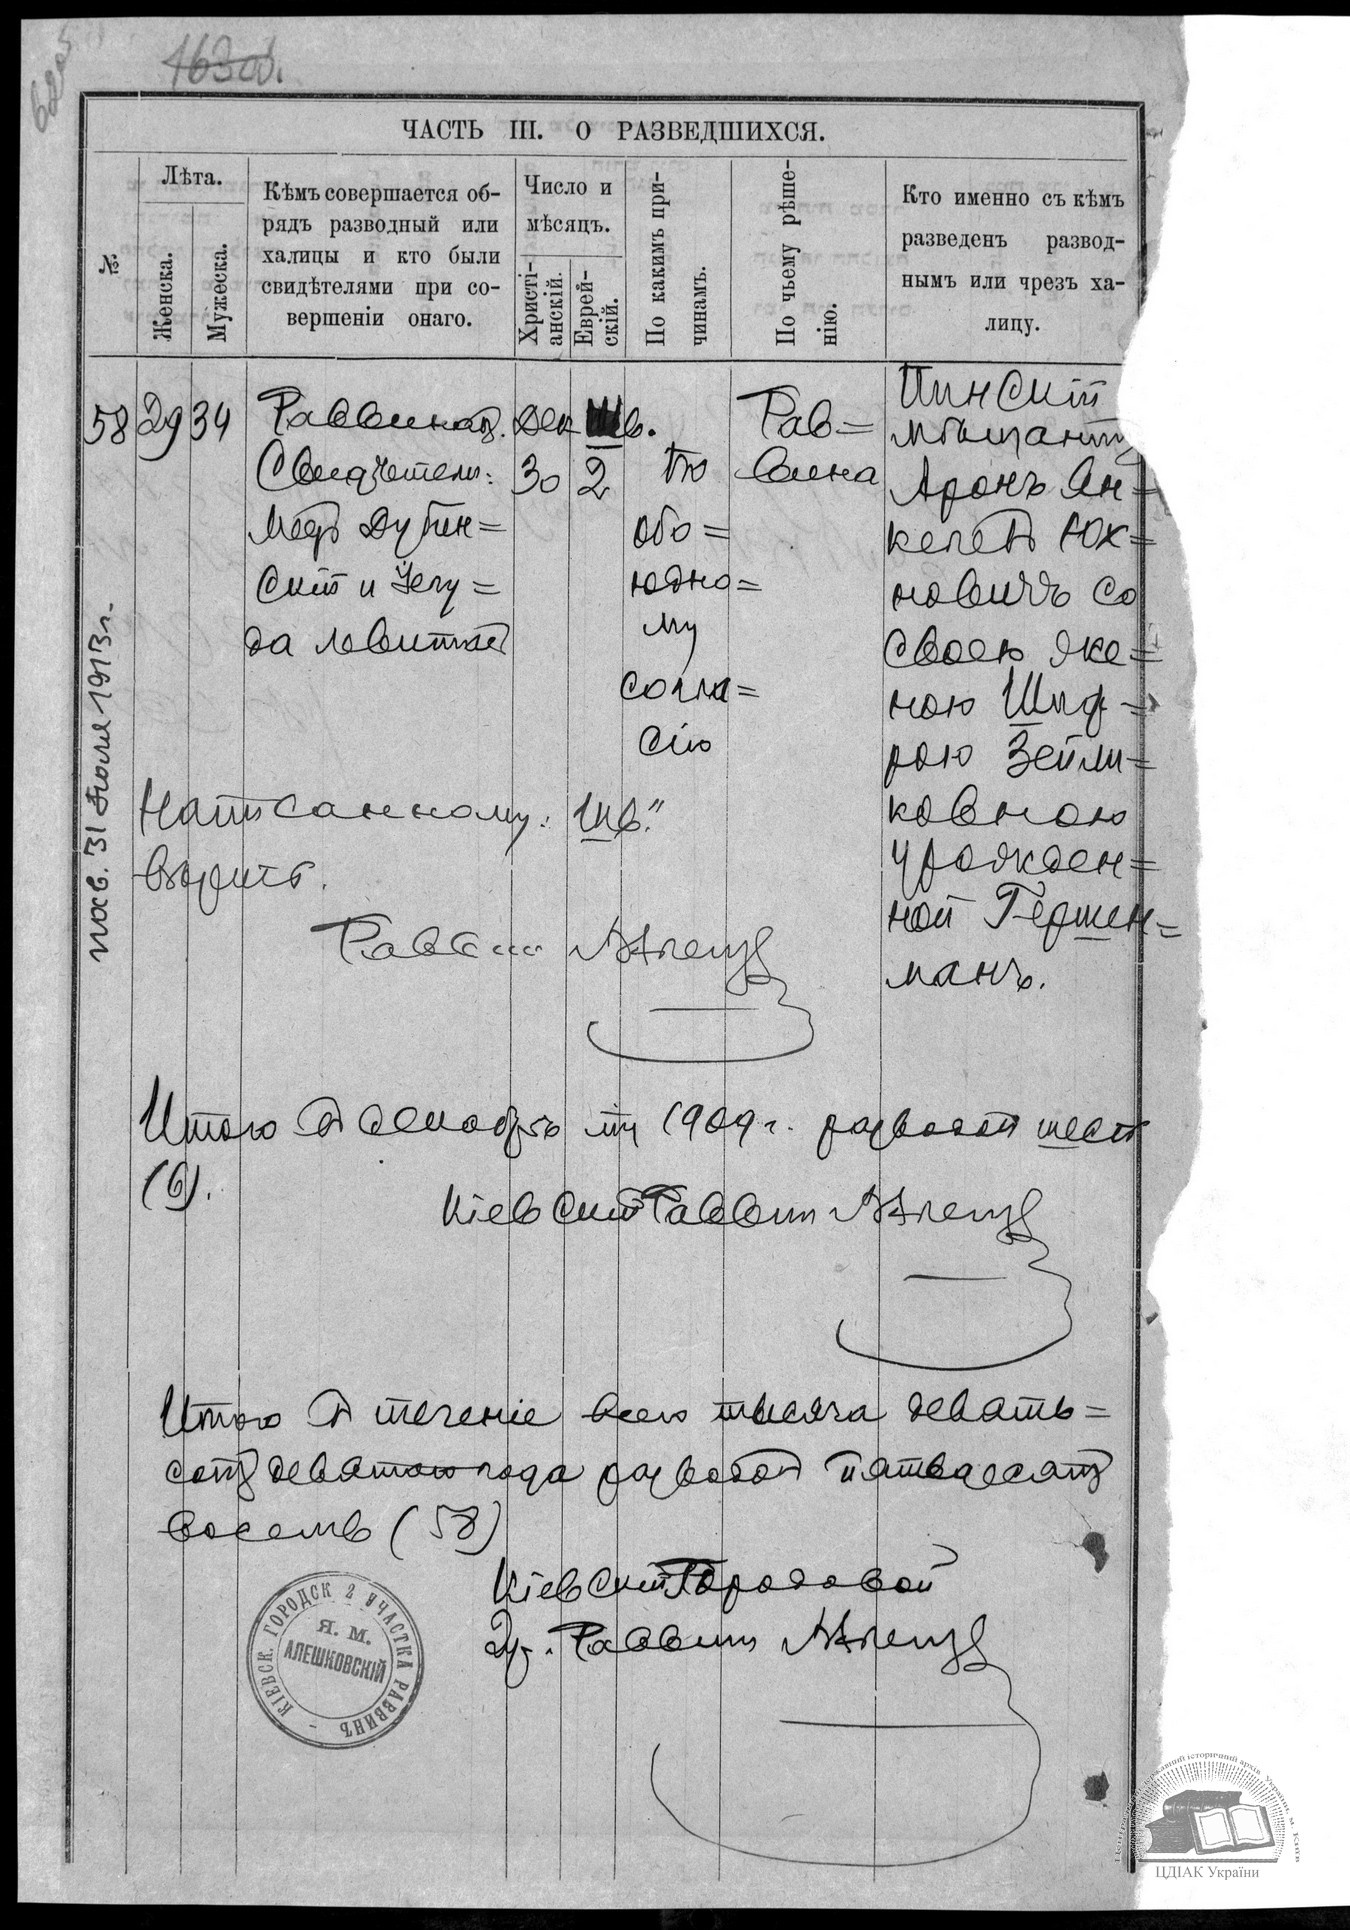 1630б.
ЧАСТЬ III. О РАЗВЕДШИХСЯ.
№.
Лѣта.
Женска.
Мужеска.
Кѣмъ совершается об-
рядъ разводный или
халицы и кто были
свидѣтелями при со-
вершеніи онаго.
Число и
мѣсяцъ.
Христі-
анскій.
Еврей-
скій.
По какимъ при-
чинамъ.
По чьему рѣше-
нію.
Кто именно съ кѣмъ
разведенъ развод-
нымъ или чрезъ ха-
лицу.
58
29
34
Раввинат.
Свидѣтели:
Меер Дубин=
скій и Іегу=
да Левитов
Дек
30
Шв.
2
По
обо=
юдно=
му
согла=
сію
Рав=
вина
Пинскій
мѣщанинъ
Аронъ Ян=
келев Юх=
новичъ со
своею же=
ною Шиф-
рою Зейли=
ковною
урожден=
ной Гершен=
манъ.
Написанному: "Шв."
вѣрить.
Раввин
Итого в декабрѣ мц 1909 г. разводов шесть
(6).
Кіевскій Раввин
Итого в теченіе всего тысяча девять=
сотъ девятого года разводов пятьдесятъ
восемь (58)
Кіевскій Городовой
Раввин
31 Іюля 1913 г.
КІЕВСК. ГОРОДСК 2 УЧАСТКА РАВВИНЪ
Я. М.
АЛЕШКОВСКІЙ
ЦДІАК України